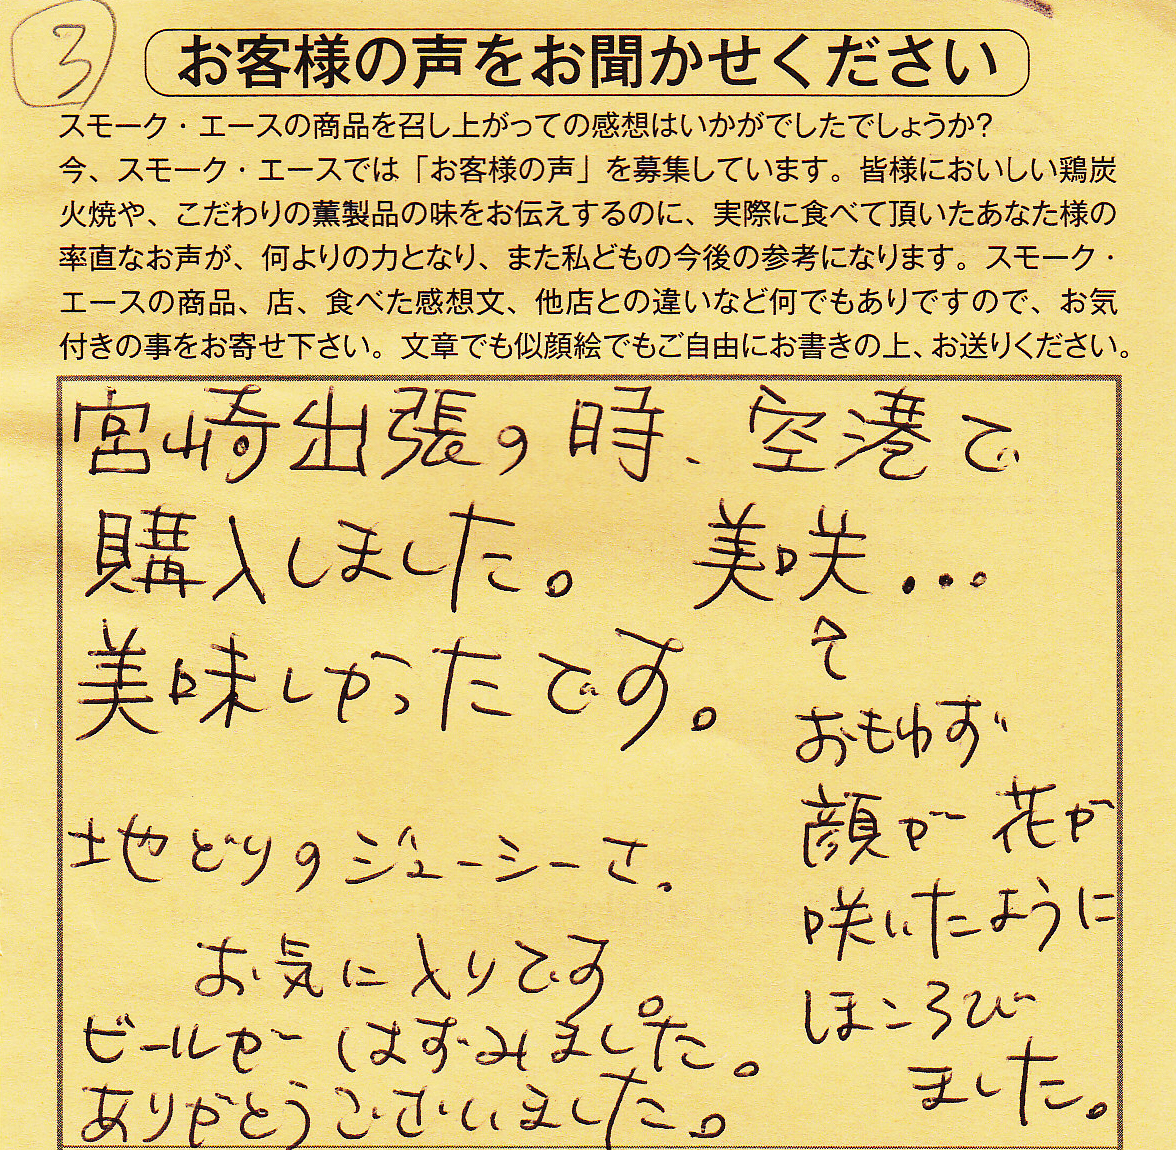 3
お客様の声をお聞かせください
スモーク・エースの商品を召し上がっての感想はいかがでしたでしょうか?
今、スモーク・エースでは「お客様の声」を募集しています。皆様においしい鶏炭
火焼や、こだわりの薫製品の味をお伝えするのに、実際に食べて頂いたあなた様の
率直なお声が、何よりの力となり、また私どもの今後の参考になります。スモーク・
エースの商品、店、食べた感想文、他店との違いなど何でもありですので、お気
付きの事をお寄せ下さい。文章でも似顔絵でもご自由にお書きの上、お送りください。
宮崎出張の時、空港で
購入しました。 美咲...
美味しかったです。
て
おもわず
顔が花が
咲いたように
ほころび
ました。
地どりのジューシーさ、
お気に入りです。
ビールが はずみました。
ありがとうございました。